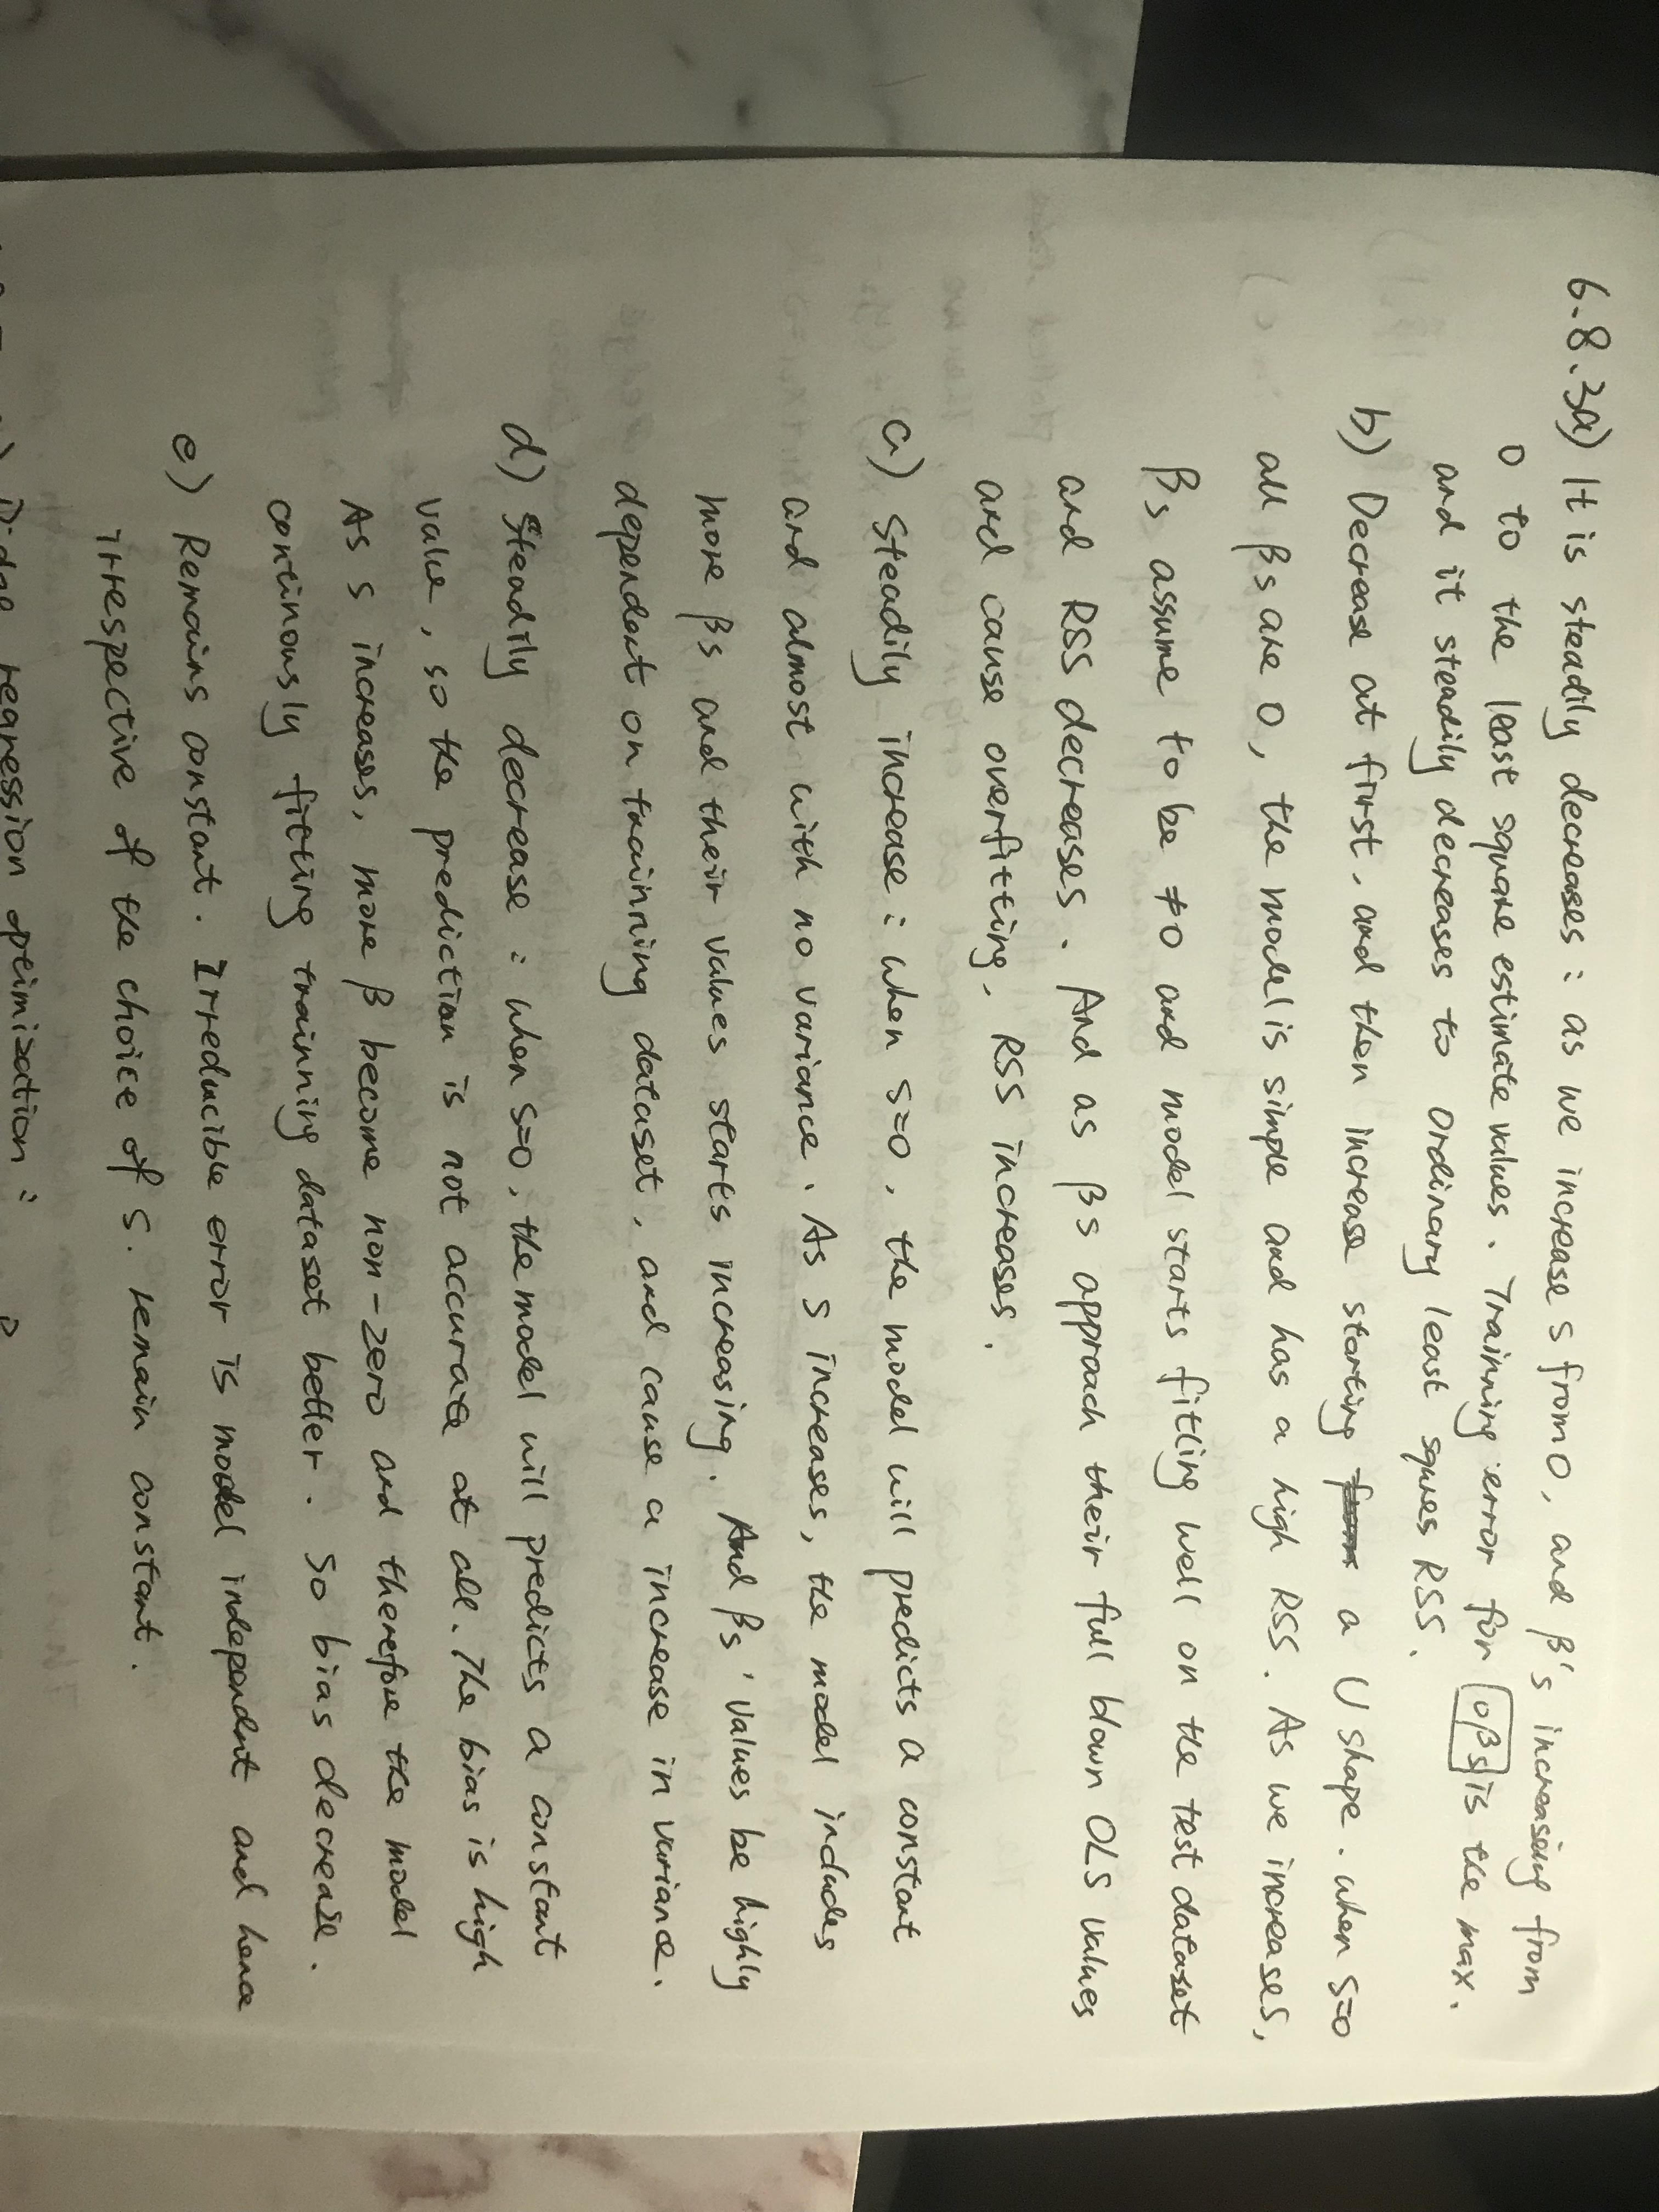 6.8.3a) It is steadily decreases : as we increase s from 0, and β's increasing from
0 to the least square estimate values. Trainning error for 0βs is the max.
and it steadily decreases to Ordinary least squres RSS.
b) Decrease at first, and then increase starting from a U shape. when s=0
all βs are 0, the model is simple and has a high RSS. As we increases,
βs assume to be ≠0 and model starts fitting well on the test dataset
and RSS decreases. And as βs approach their full blown OLS values
and cause overfitting, RSS increases.
c) Steadily increase : when s=0, the model will predicts a constant
and almost with no variance. As s increases, the model includes
more βs and their values starts increasing. And βs' values be highly
dependent on trainning dataset, and cause a increase in variance.
d) Steadily decrease : when s=0, the model will predicts a constant
value, so the prediction is not accurate at all. The bias is high
As s increases, more β become non-zero and therefore the model
continously fitting trainning dataset better. So bias decrease.
e) Remains constant. Irreducible error is model independent and hence
irrespective of the choice of s. remain constant.
regression optimization :